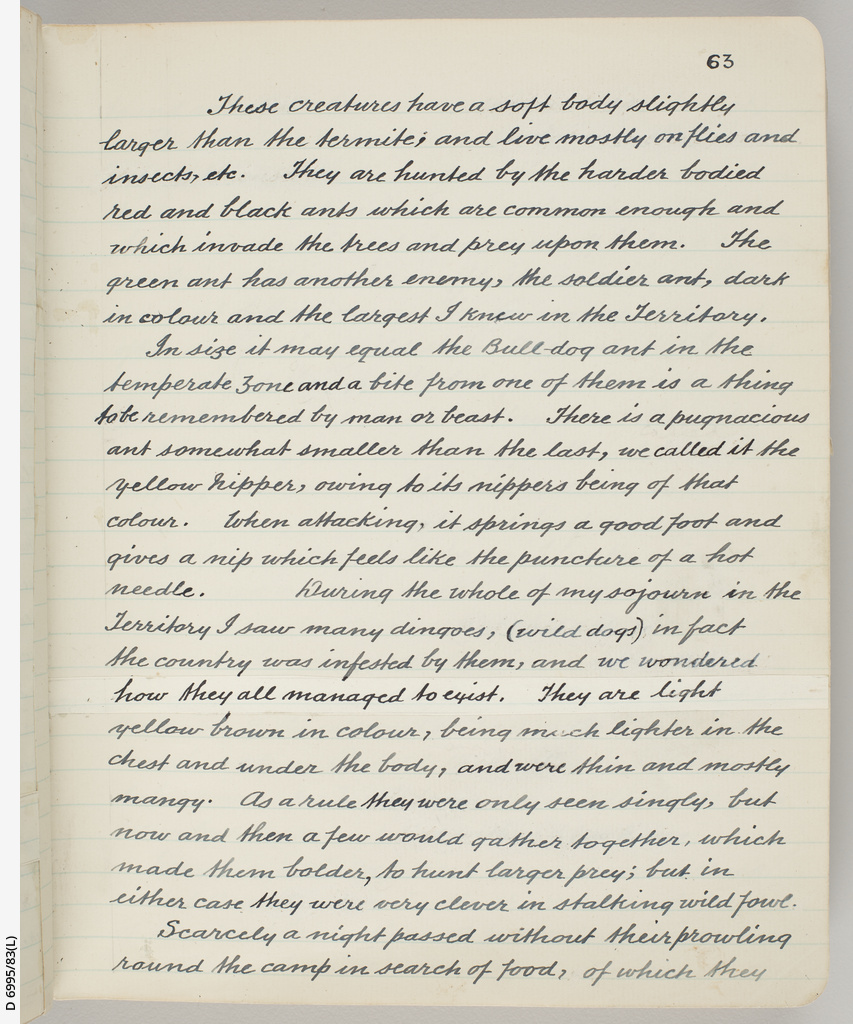 63
These creatures have a soft body slightly
larger than the termite; and live mostly on flies and
insects, etc. They are hunted by the harder bodied
red and black ants which are common enough and
which invade the trees and prey upon them. The
green ant has another enemy, the soldier ant, dark
in colour and the largest I knew in the Territory.
In size it may equal the Bull-dog ant in the
temperate zone and a bite from one of them is a thing
to be remembered by man or beast. There is a pugnacious
ant somewhat smaller than the last, we called it the
yellow Nipper, owing to its nippers being of that
colour. When attacking, it springs a good foot and
gives a nip which feels like the puncture of a hot
needle. During the whole of my sojourn in the
Territory I saw many dingoes, (wild dogs) in fact
the country was infested by them, and we wondered
how they all managed to exist. They are light
yellow brown in colour, being much lighter in the
chest and under the body, and were thin and mostly
mangy. As a rule they were only seen singly, but
now and then a few would gather together, which
made them bolder, to hunt larger prey; but in
either case they were very clever in stalking wild fowl.
Scarcely a night passed without their prowling
round the camp in search of food, of which they
D 6995/83(L)